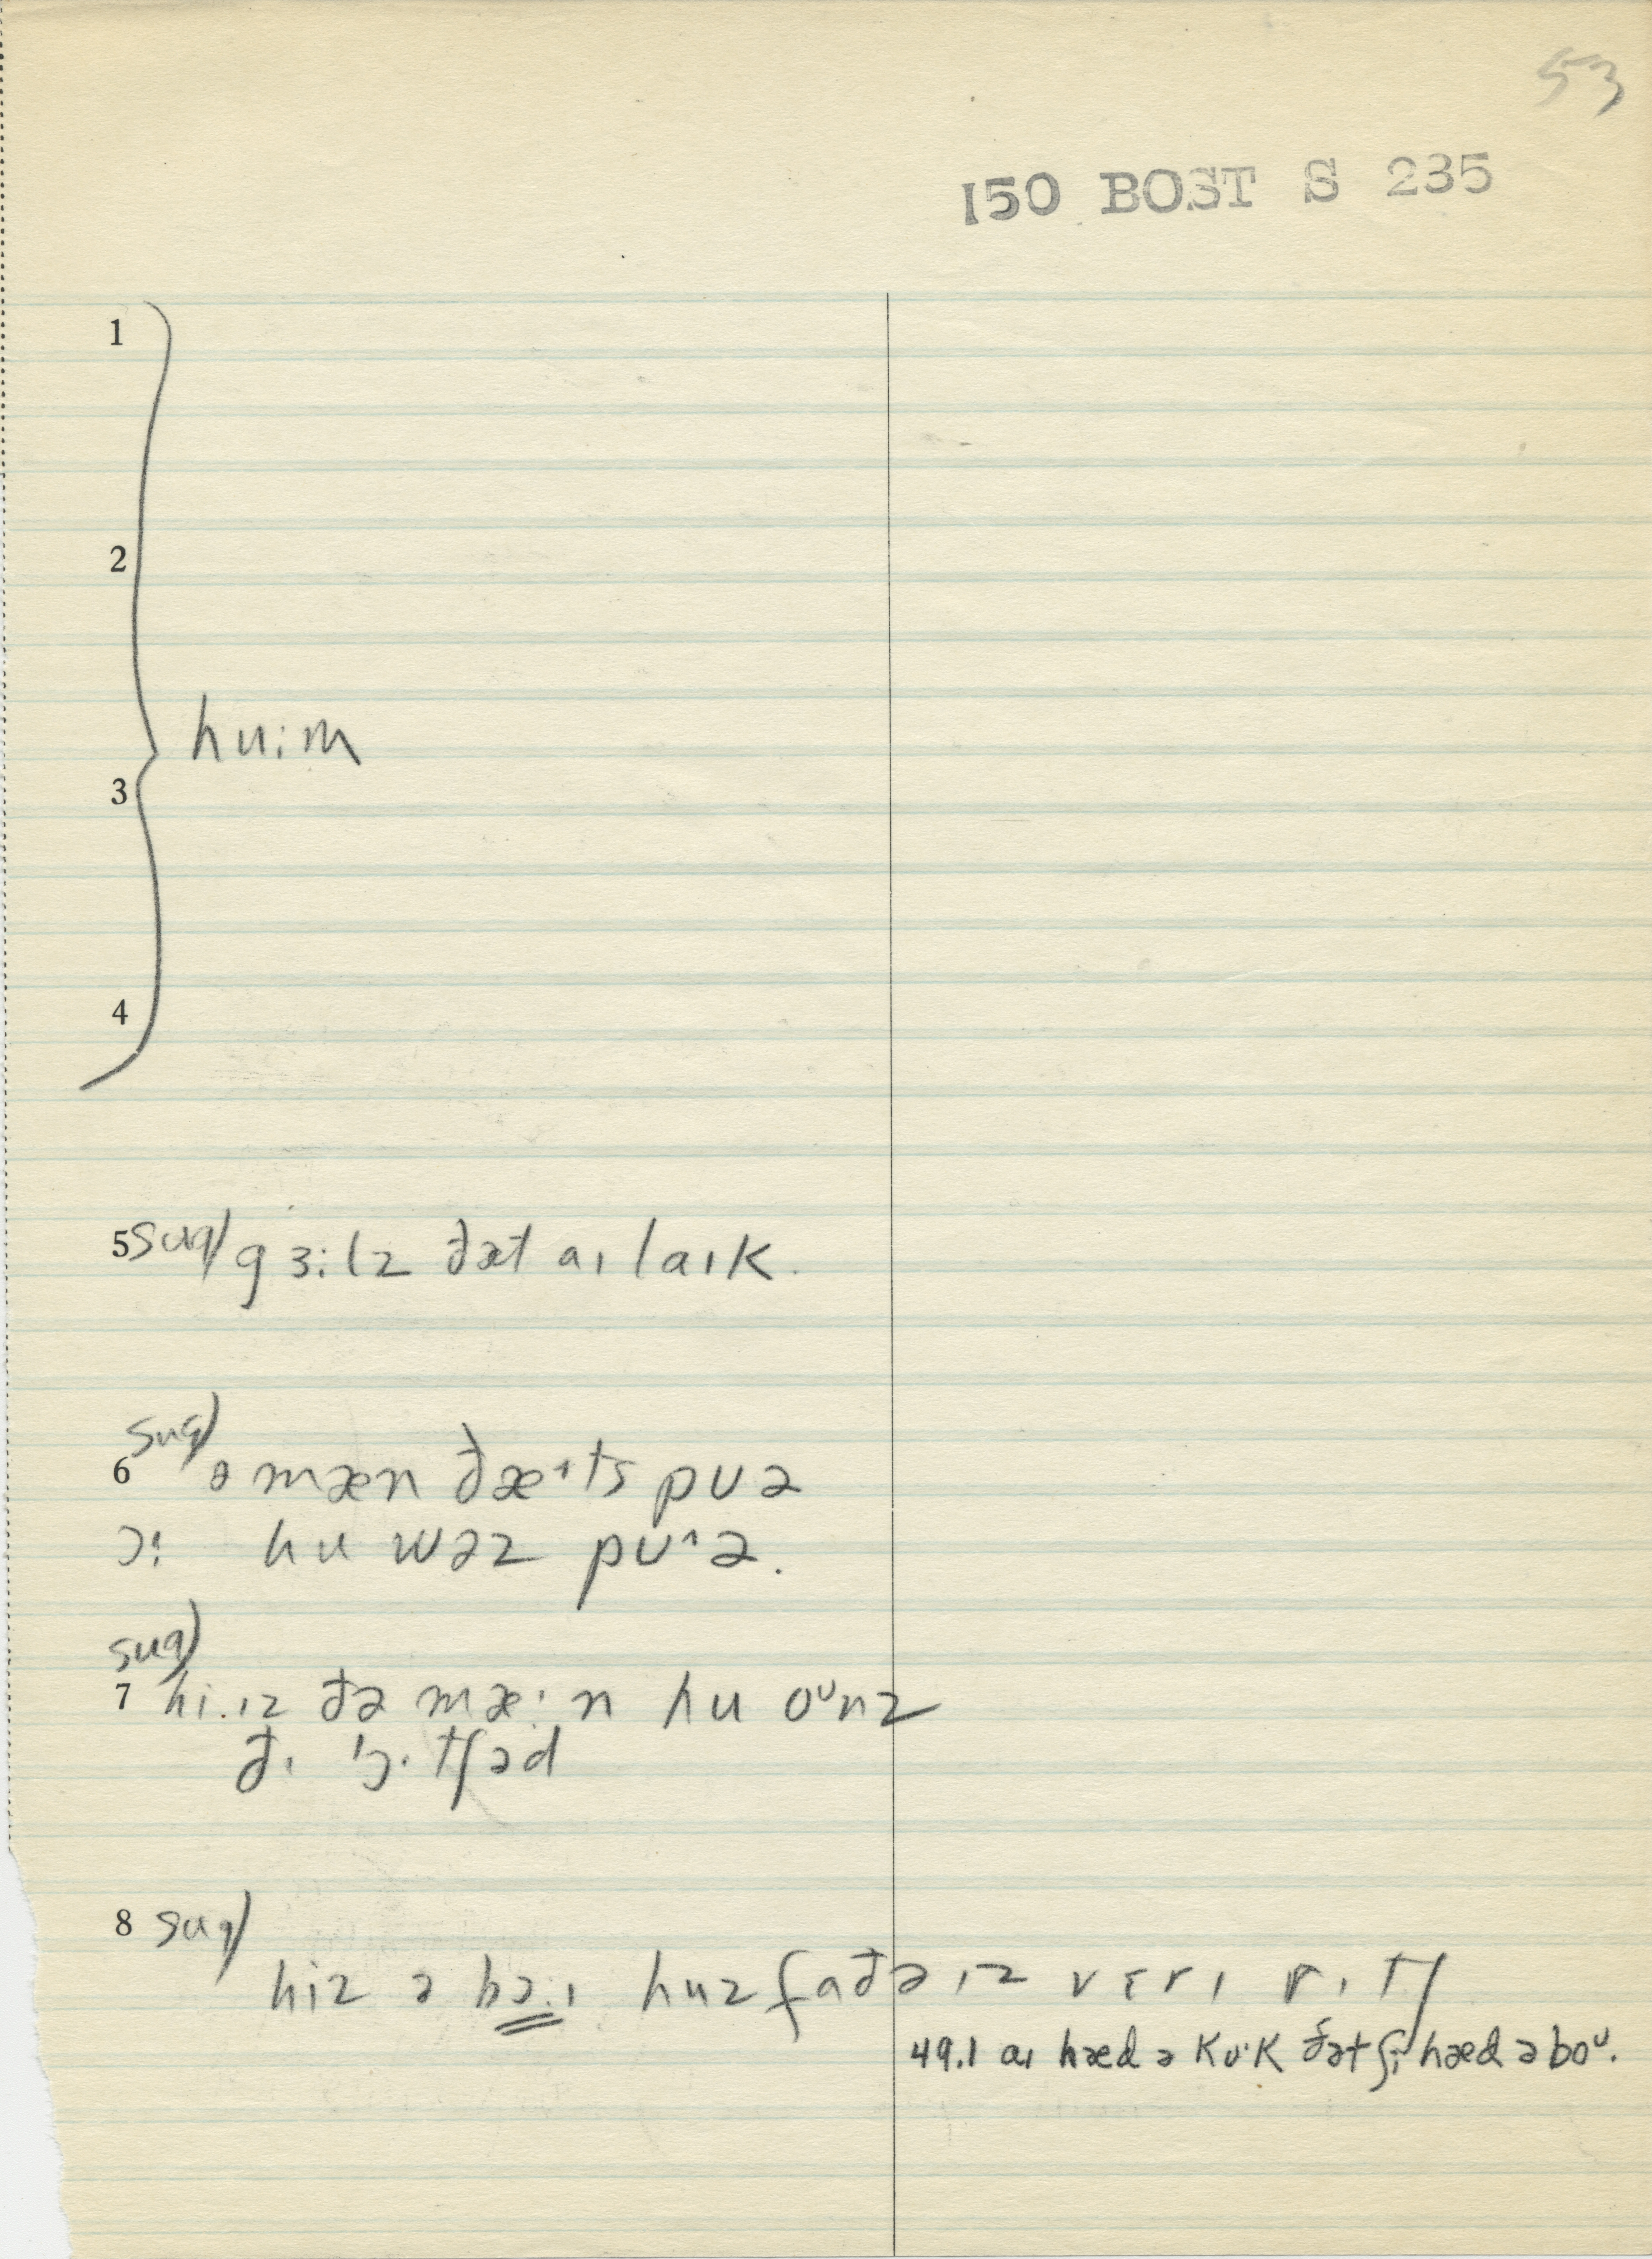 53
150 BOST S 235
1
2
hu:m
3
4
5 sug) gɜ:lz ðət aɪ laɪk.
sug)
6 ə mæn ðæ˔ts pʊə
ɔ: hu wəz pʊ^ə.
sug)
7 hi.ɪz ðə mæ·n hu oᶷnz
ðɪ 'ɔ·tʃəd
8 sug)
hiz ə bɔ.ɪ huz faðə ɪz vɛrɪ rɪtʃ
49.1 aɪ hæd ə kʊ·k ðət ʃi hæd əboᶷ.